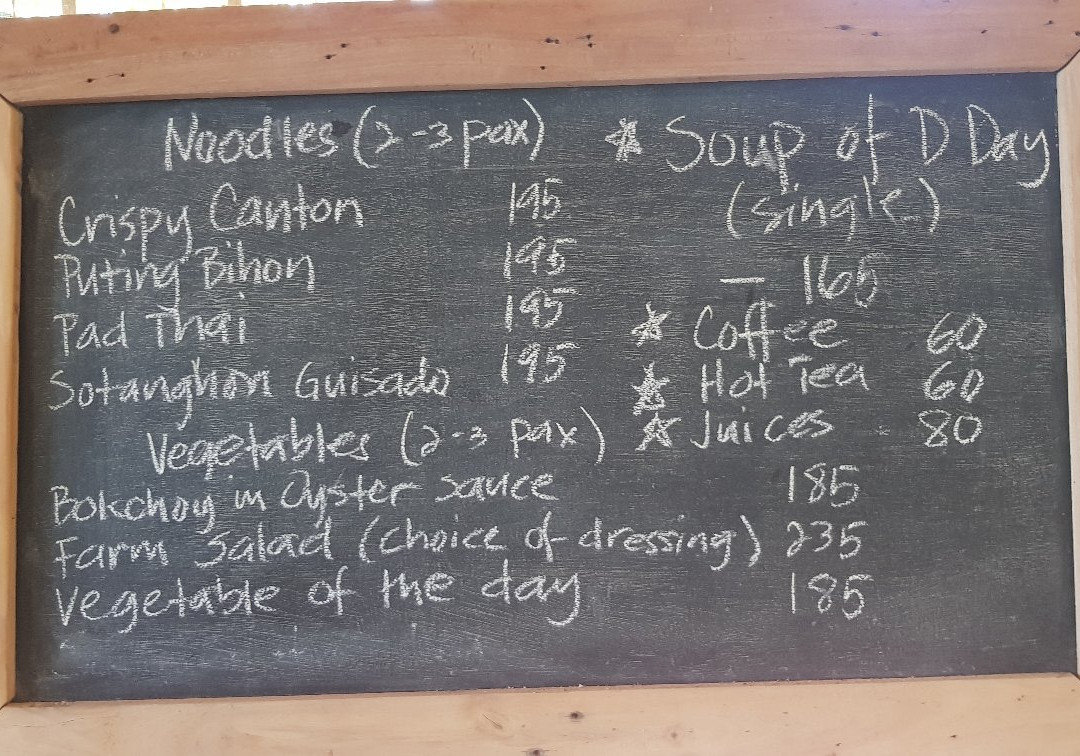 Noodles (2-3 pax)
Crispy Canton 195
Puting Bihon 195
Pad Thai 195
Sotanghon Guisado 195
Vegetables (2-3 pax)
Bokchoy in Oyster sauce 185
Farm Salad (choice of dressing) 235
Vegetable of the day 185
* Soup of D Day
(single)
— 165
* Coffee 60
* Hot Tea 60
* Juices 80